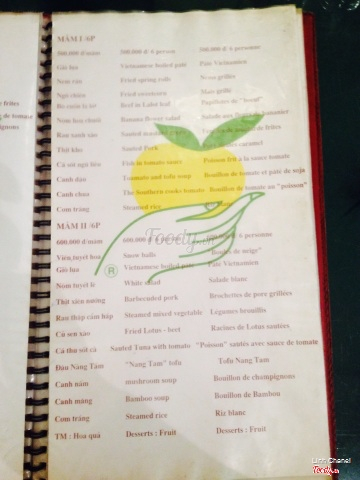 MÂM I /6P
300.000 đ/mâm 300.000 đ/ 6 person 300.000 đ/ 6 personne
Giò lụa Vietnamese boiled paté Pâte Vietnamien
Nem rán Fried spring rolls Nems grillés
Ngô chiên Fried sweetcorn Mais grillé
Bò cuốn lá lốt Beef in Lalot leaf Papillotes de "boeuf"
Nộm hoa chuối Banana flower salad Salade aux fleurs de bananier
Rau xanh xào Sauted
Thịt kho Sauted Pork caramel
Cá sôi ngũ liễu Fish in tomato sauce Poisson frit à la sauce tomate
Canh đậu Toamato and tofu soup Bouillon de tomate et pâte de soja
Canh chua The Southern cooks tomato Bouillon de tomate au "poison"
Cơm trắng Steamed rice
MÂM II /6P
600.000 đ/mâm 600.000 đ/ 6 personne
Viên tuyết hoa Snow balls "Boules de neige"
Giò lụa Vietnamese boiled pate Pâte Vietnamien
Nộm tuyết lê White salad Salade blanc
Thịt xiên nướng Barbecuded pork Brochettes de porc grillées
Rau thập cẩm hấp Steamed mixed vegetable Légumes brouillis
Củ sen xào Fried Lotus - beet Racines de Lotus sautées
Cá thu sốt cà Sauted Tuna with tomato "Poisson" sautés avec sauce de tomate
Đậu Nàng Tấm "Nang Tam" tofu Tofu Nang Tam
Canh nấm mushroom soup Bouillon de champignons
Canh măng Bamboo soup Bouillon de Bambou
Cơm trắng Steamed rice Riz blanc
TM : Hoa quả Desserts : Fruit Desserts : Fruit
Foody.vn
®
Linh Chanel
Foody.vn